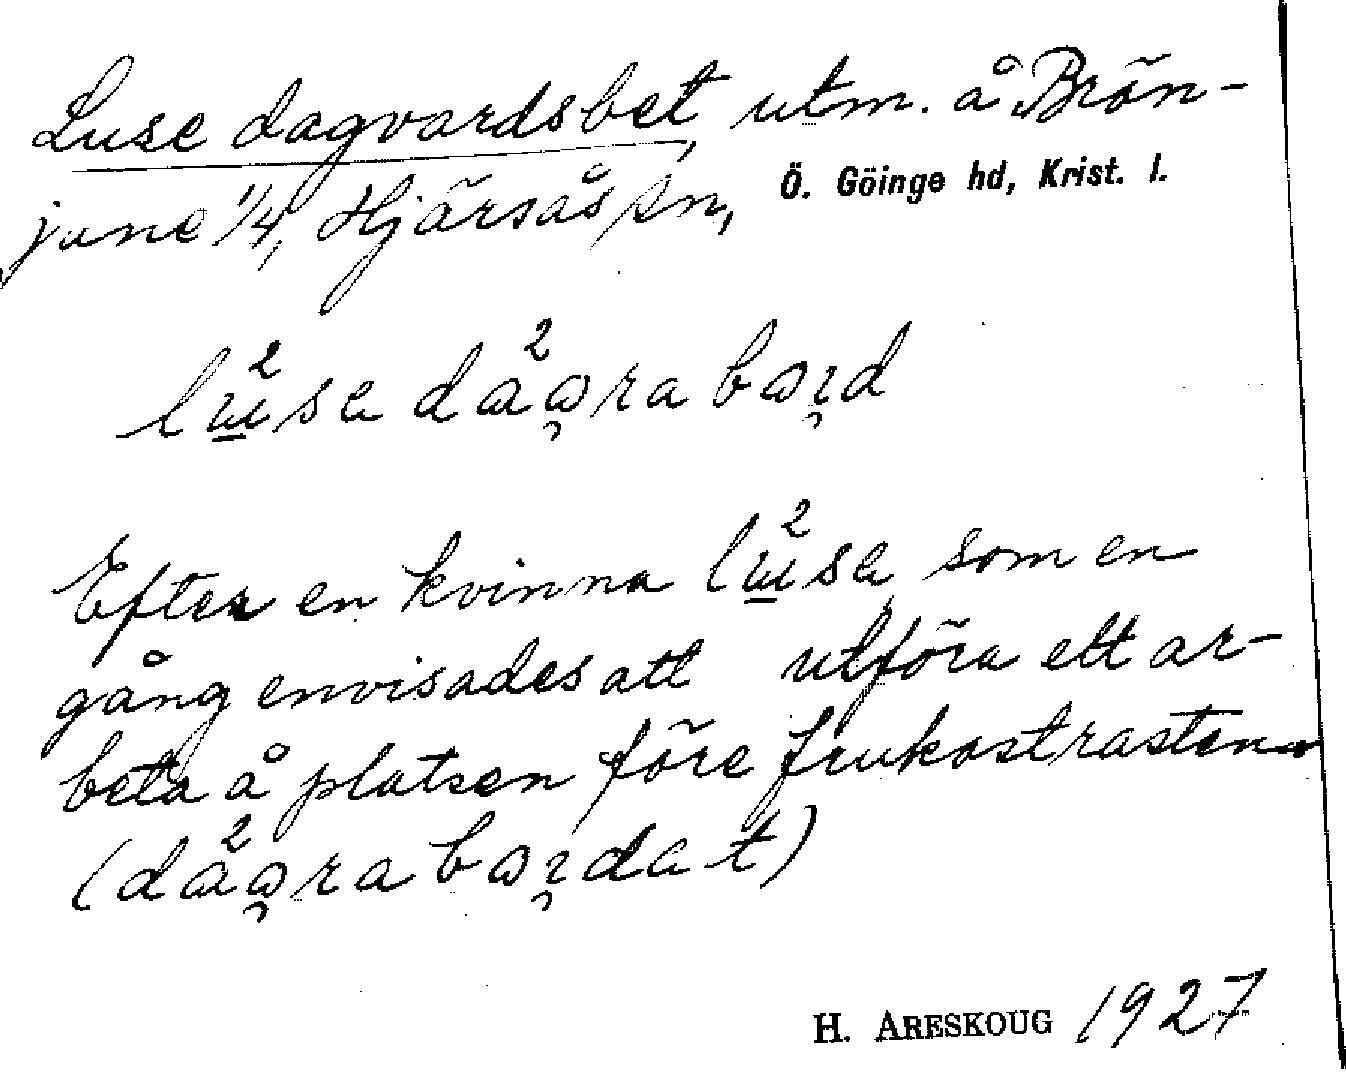 Luse dagvardsbet, utm. å Brön-
june 1/4, Hjärsås sn, Ö. Göinge hd, Krist. l.
Efter en kvinna som en
gång envisades att utföra ett ar-
bete å platsen före frukostrasten
H. ARESKOUG 1927